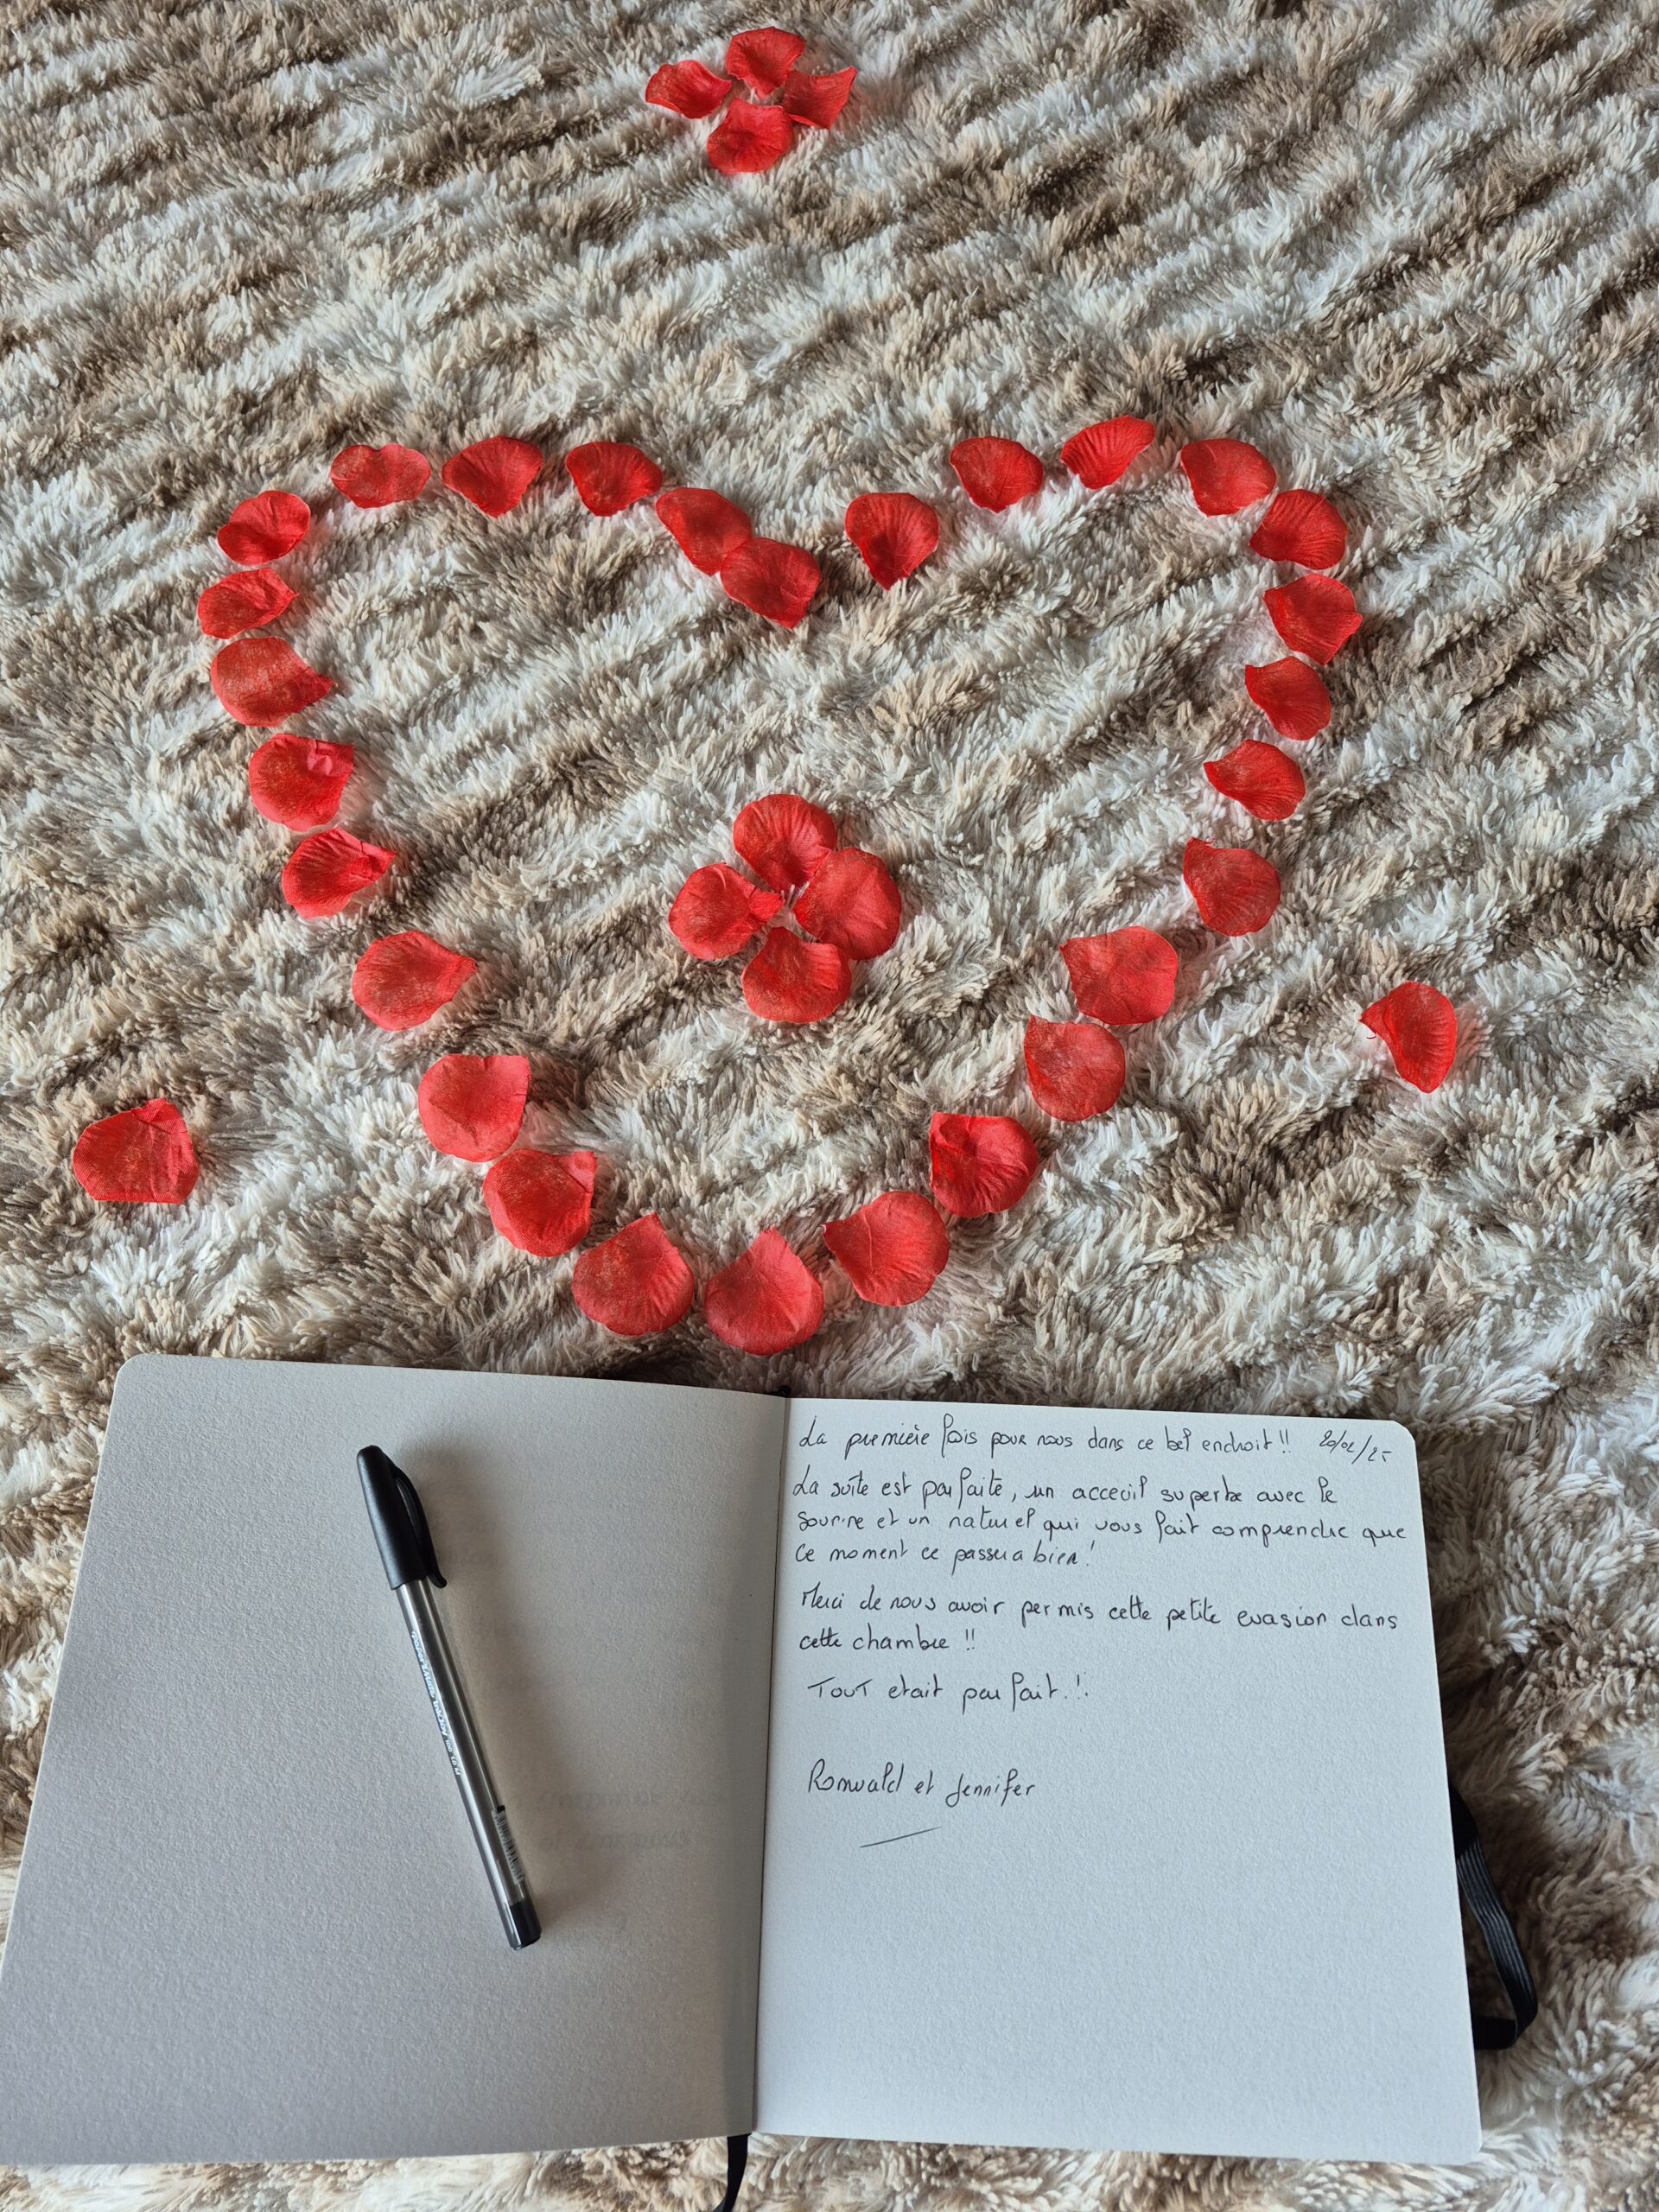 La première fois pour nous dans ce bel endroit !! 20/02/25
La suite est parfaite, un acceuil superbe avec le
sourire et un naturel qui vous fait comprendre que
ce moment ce passera bien !
Merci de nous avoir permis cette petite evasion dans
cette chambre !!
TOUT etait parfait !!
Romuald et Jennifer